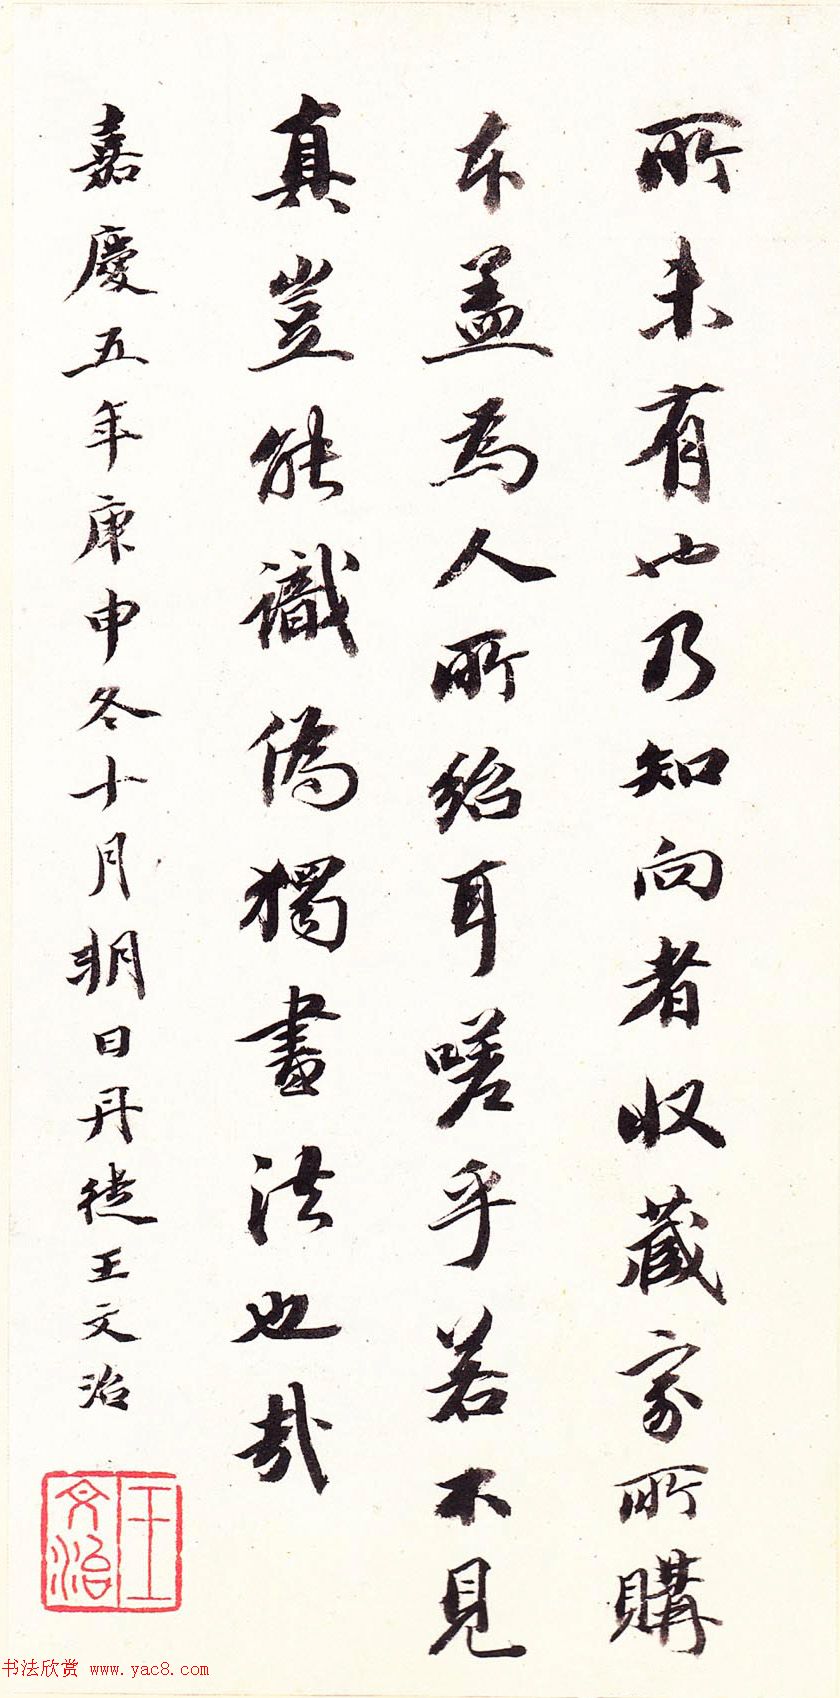 所未有也乃知向者收藏家所購
本蓋為人所紿耳嗟乎若不見
真豈能識偽獨畫法也哉
嘉慶五年庚申冬十月朔日丹徒王文治
王文治
书法欣赏 www.yac8.com